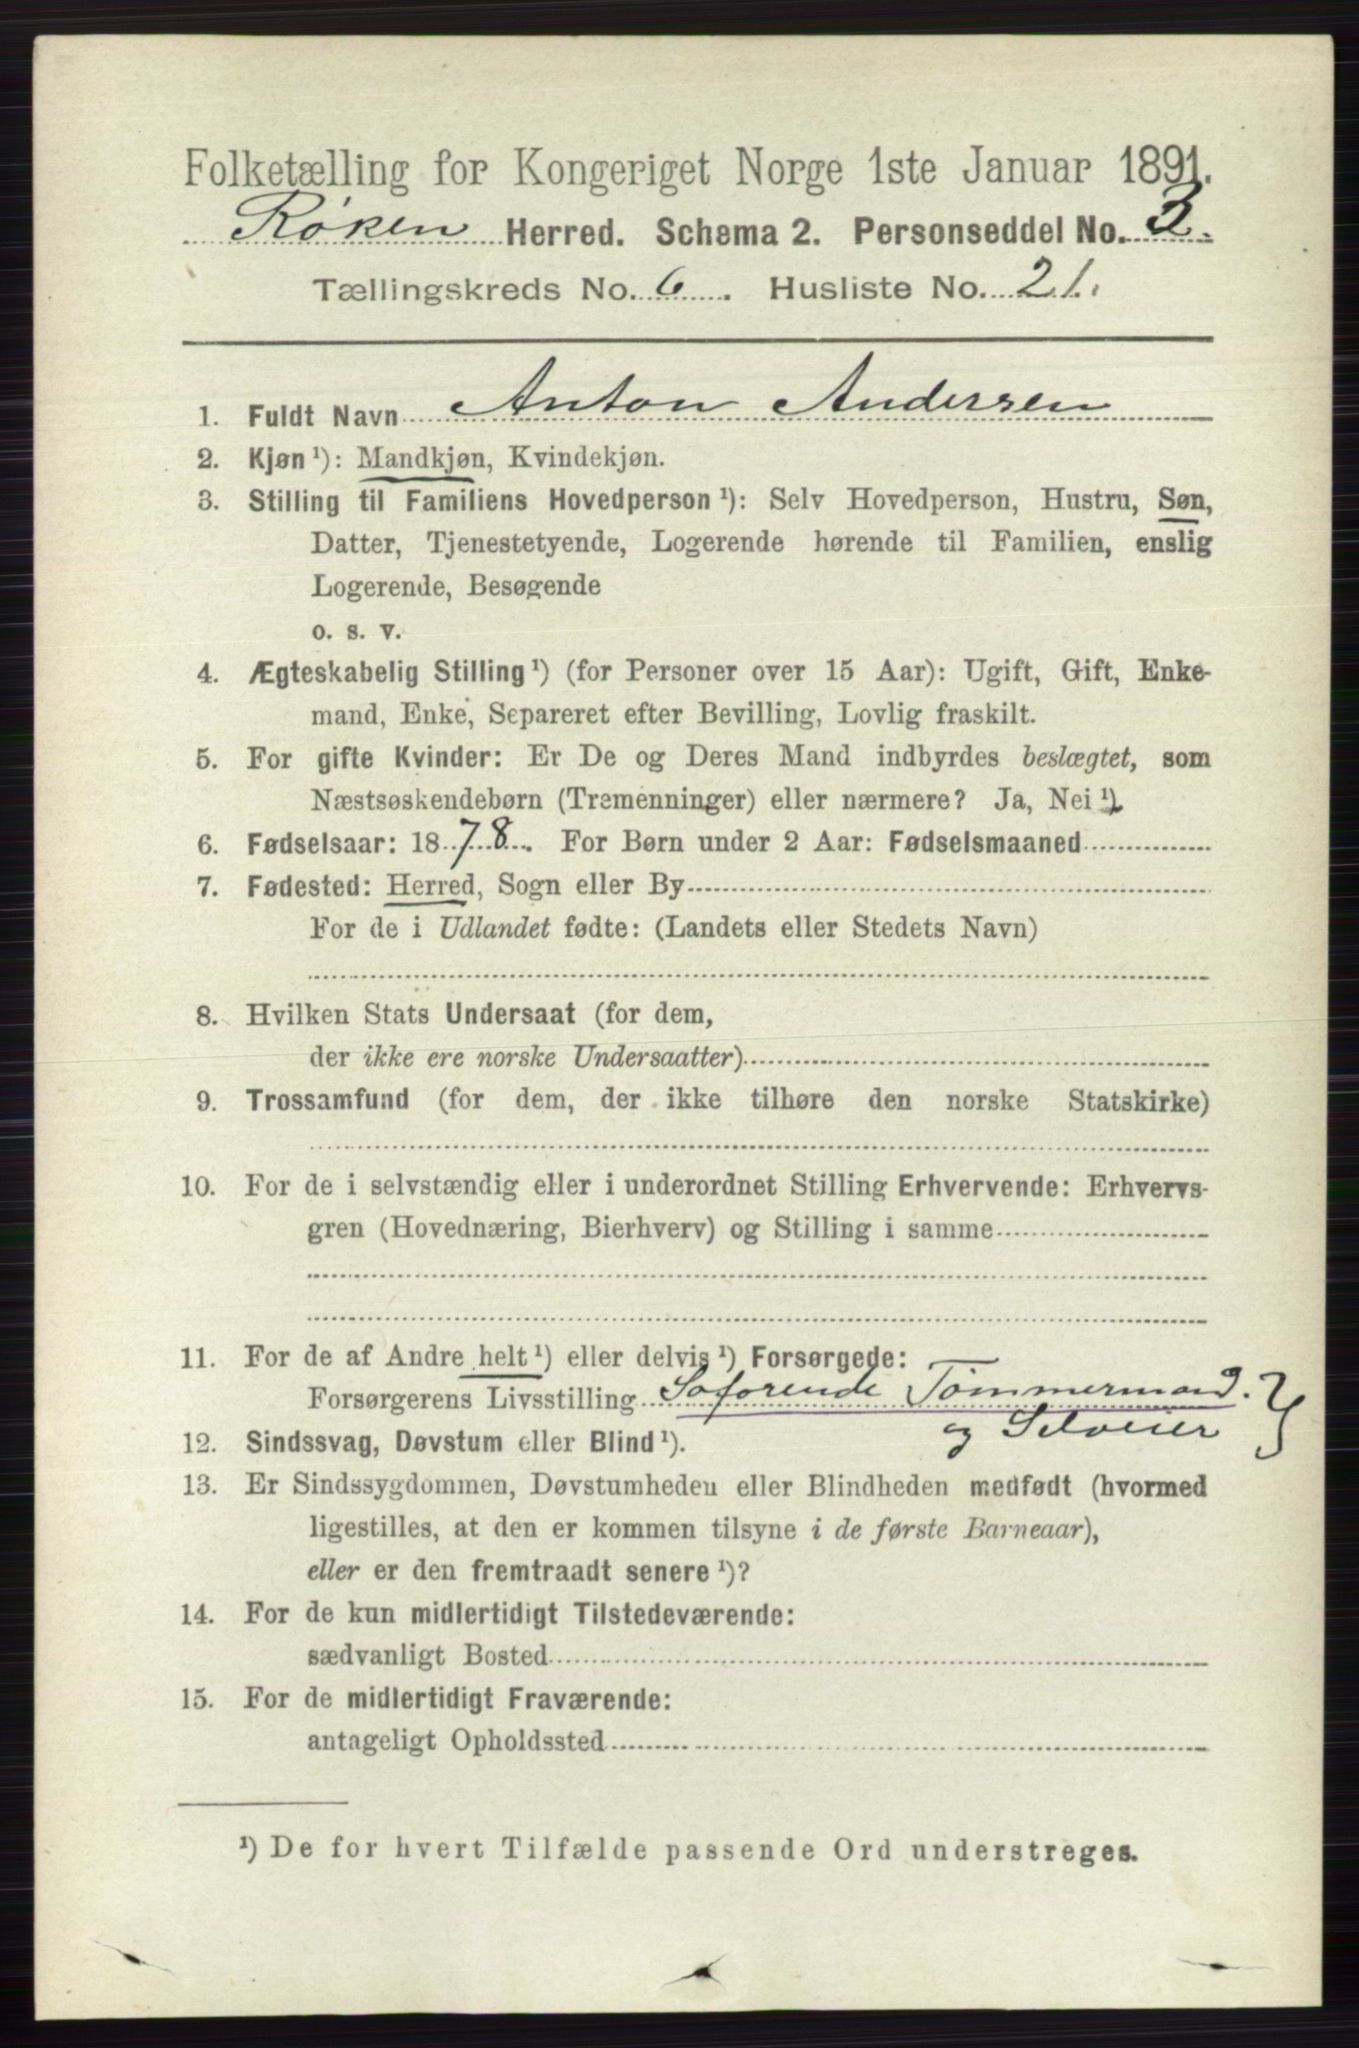 Folketælling for Kongeriget Norge 1ste Januar 1891.
Røken Herred. Schema 2. Personseddel No. 3.
Tællingskreds No. 6. Husliste No. 21.
1. Fuldt Navn Anton Andersen
2. Kjøn¹): Mandkjøn, Kvindekjøn.
3. Stilling til Familiens Hovedperson¹): Selv Hovedperson, Hustru, Søn,
Datter, Tjenestetyende, Logerende hørende til Familien, enslig
Logerende, Besøgende
o. s. v.
4. Ægteskabelig Stilling¹) (for Personer over 15 Aar): Ugift, Gift, Enke-
mand, Enke, Separeret efter Bevilling, Lovlig fraskilt.
5. For gifte Kvinder: Er De og Deres Mand indbyrdes beslægtet, som
Næstsøskendebørn (Tremenninger) eller nærmere? Ja, Nei¹).
6. Fødselsaar: 1878. For Børn under 2 Aar: Fødselsmaaned
7. Fødested: Herred, Sogn eller By
For de i Udlandet fødte: (Landets eller Stedets Navn)
8. Hvilken Stats Undersaat (for dem,
der ikke ere norske Undersaatter)
9. Trossamfund (for dem, der ikke tilhøre den norske Statskirke)
10. For de i selvstændig eller i underordnet Stilling Erhvervende: Erhvervs-
gren (Hovednæring, Bierhverv) og Stilling i samme
11. For de af Andre helt¹) eller delvis¹) Forsørgede:
Forsørgerens Livsstilling Søfarende Tømmermand.
og Selveier
12. Sindssvag, Døvstum eller Blind¹).
13. Er Sindssygdommen, Døvstumheden eller Blindheden medfødt (hvormed
ligestilles, at den er kommen tilsyne i de første Barneaar),
eller er den fremtraadt senere¹)?
14. For de kun midlertidigt Tilstedeværende:
sædvanligt Bosted
15. For de midlertidigt Fraværende:
antageligt Opholdssted
¹) De for hvert Tilfælde passende Ord understreges.